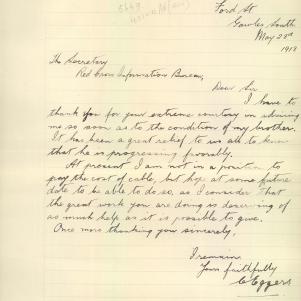 Ford St
Gawler South
May 23rd
1918
The Secretary
Red Cross Information Bureau,
Dear Sir
I have to
thank you for your extreme courtesy in advising
me so soon as to the condition of my brother.
It has been a great relief to us all to know
that he is progressing favorably.
At present I am not in a position to
pay the cost of cable, but hope at some future
date to be able to do so, as I consider that
the great work you are doing is deserving of
as much help as it is possible to give.
Once more thanking you sincerely,
I remain
Yours faithfully
C Eggers